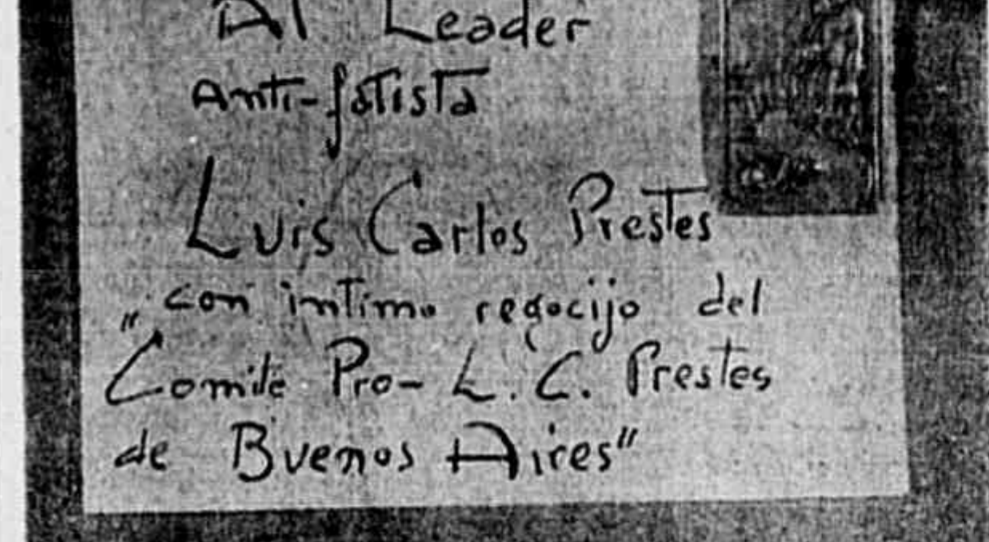 Al Leader
Anti-fatista
Luis Carlos Prestes
"con intimo regocijo del
Comité Pro- L. C. Prestes
de Buenos Aires"